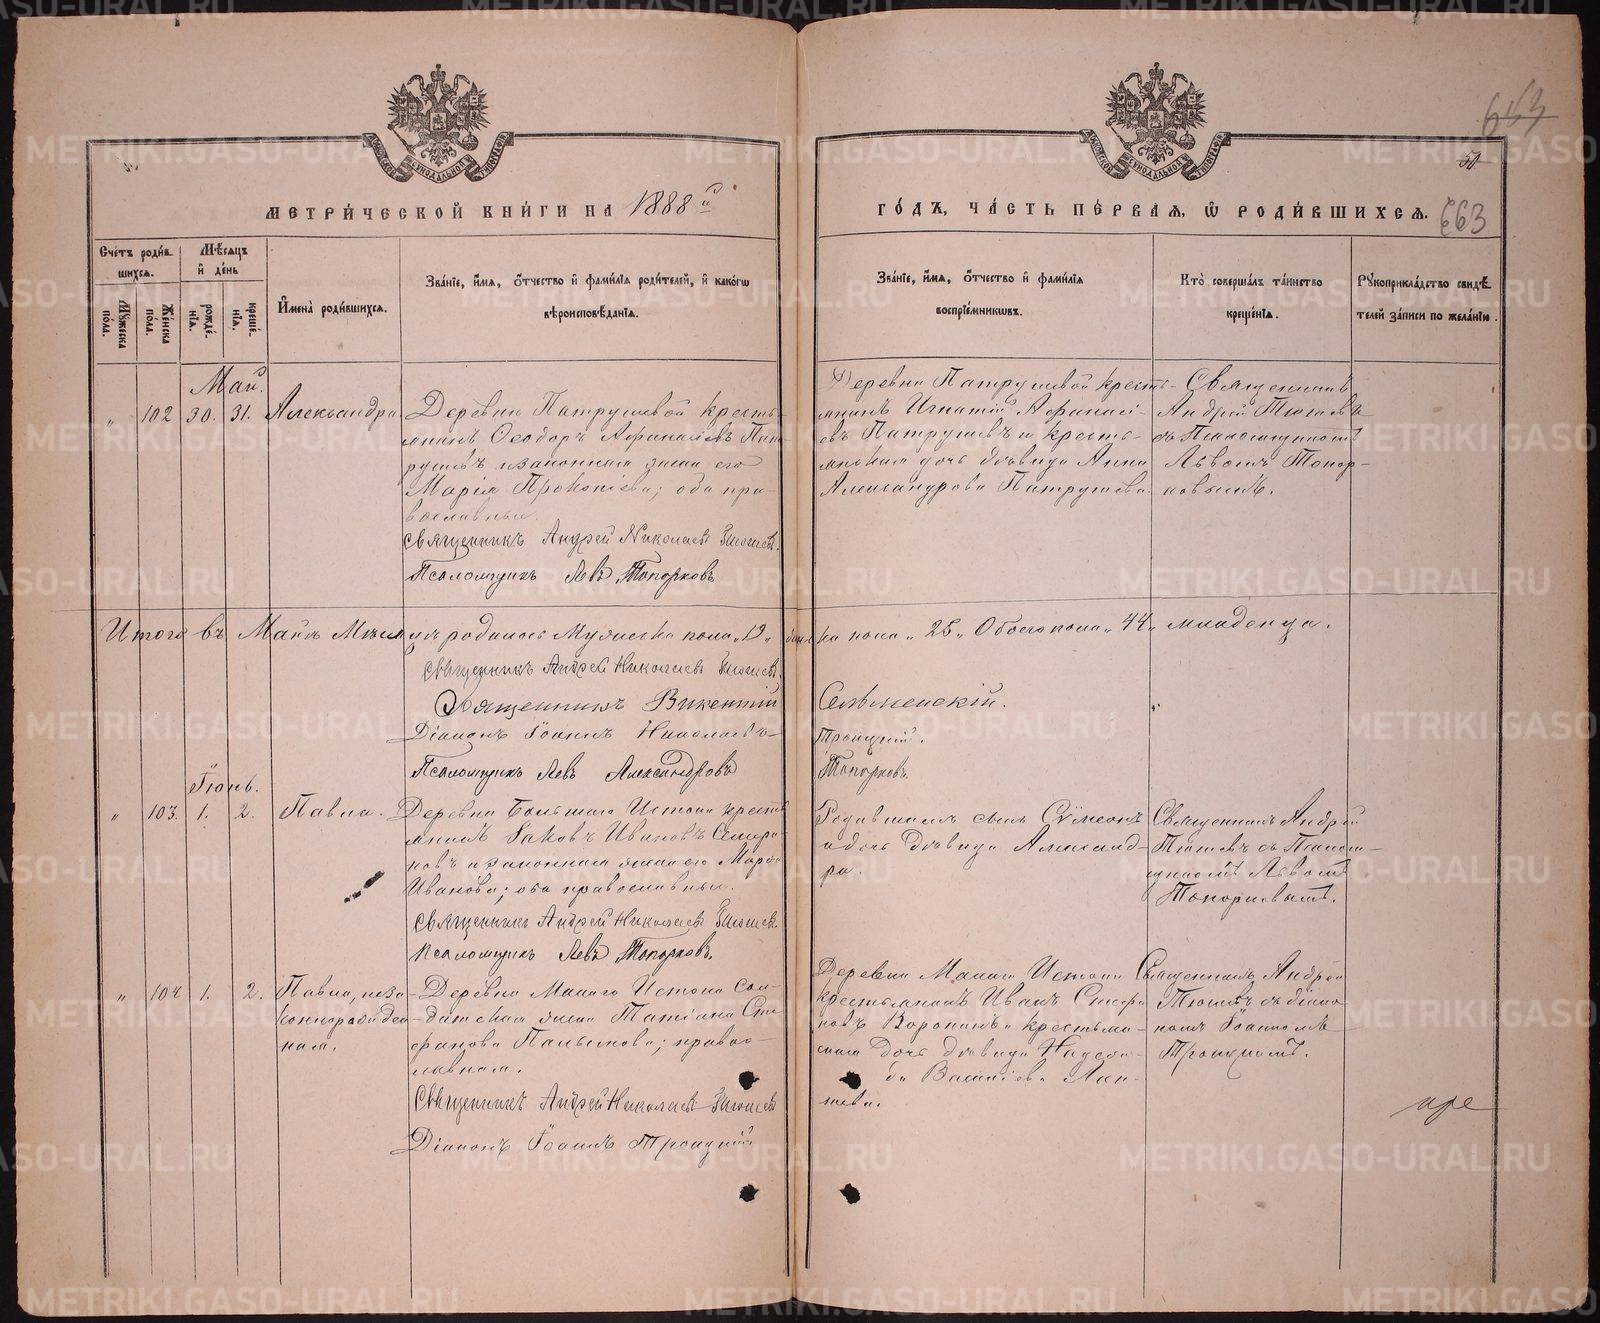 МЕТРИ́ЧЕСКОЙ КНИ́ГИ НА 1888й
ГО́ДЪ, ЧА́СТЬ ПЕ́РВАЯ, Ѽ РОДИ́ВШИХСЯ.
50
663
Сче́тъ роди́в-
шихся.
Мꙋ́жеска по́ла.
Же́нска по́ла.
Мѣ́сяцъ
и҆ де́нь
рожде́-
нїя.
креще́-
нїя.
И҆мена̀ роди́вшихся.
Зва́нїе, и҆́мя, ѻ҆́тчество и҆ фами́лїя роди́телей, и҆ како́гѡ
вѣроисповѣ́данїя.
Зва́нїе, и҆́мя, ѻ҆́тчество и҆ фами́лїя
воспрїе́мникѡвъ.
Кто̀ соверша́лъ та́инство
креще́нїя.
Рꙋкоприкла́дство свидѣ́-
телей за́писи по жела́нїю.
Май.
„ 102 30. 31. Александра
Деревни Патрушевой кресть-
янинъ Ѳеодоръ Аѳанасіевъ Пат-
рушевъ и законная жена его
Марія Прокопіева; оба пра-
вославные.
Священникъ Андрей Николаевъ
Псаломщикъ Левъ Топорковъ
Деревни Патрушевой кресть-
янинъ Игнатій Аѳанасі-
евъ Патрушевъ и кресть-
янская дочь дѣвица Анна
Александрова Патрушева.
Священникъ
Андрей
съ Псаломщикомъ
Львомъ Топор-
ковымъ.
Итого въ Маѣ Мѣсяцѣ родилось Мужеска пола „19„ женска пола „25„ Обоего пола „44„ младенца.
Священникъ Андрей Николаевъ
Священникъ Викентій
Діаконъ Іоаннъ Николаевъ
Троицкій.
Псаломщикъ Левъ Александровъ
Топорковъ.
Іюнь.
„ 103. 1. 2. Павла.
Деревни Большаго Истока кресть-
янинъ Іаковъ Ивановъ
и законная жена его Марѳа
Иванова; оба православные.
Священникъ Андрей Николаевъ
Псаломщикъ Левъ Топорковъ.
Родившаяся сынъ Сѵмеонъ
и дочь дѣвица Александ-
ра.
Священникъ Андрей
съ Псалом-
щикомъ Львомъ
Топорковымъ.
„ 104 1. 2. Павла, неза-
коннорожден-
ная.
Деревни Малаго Истока сол-
датская жена Татіана Сте-
фанова; право-
славная.
Священникъ Андрей Николаевъ
Діаконъ Іоаннъ Троицкій
Деревни Малаго Истока
крестьянинъ Иванъ
Воронинъ и крестьян-
ская дочь дѣвица Надеж-
да Василіева Лап-
тева.
Священникъ Андрей
съ діако-
номъ Іоанномъ
Троицкимъ.
METRIKI.GASO-URAL.RU